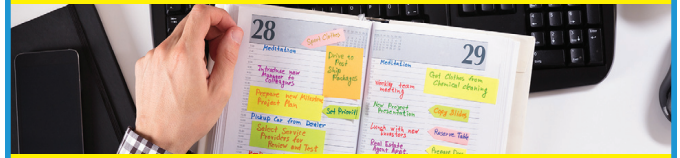 28
Sport Clothes
Meditation
Drive to
Post
Ship
Packages
Introduce new
Manager to
Colleagues
Prepare new Milestone
Project Plan
Set Priority
Pickup Car from Dealer
Select Service
Providers for
Review and Test
29
Meditation
Get Clothes from
Chemical cleaning
Weekly team
meeting
New Project
Presentation
Copy Slides
Lunch with new
investors
Reserve Table
Real Estate
Agent Appt.
Prepare